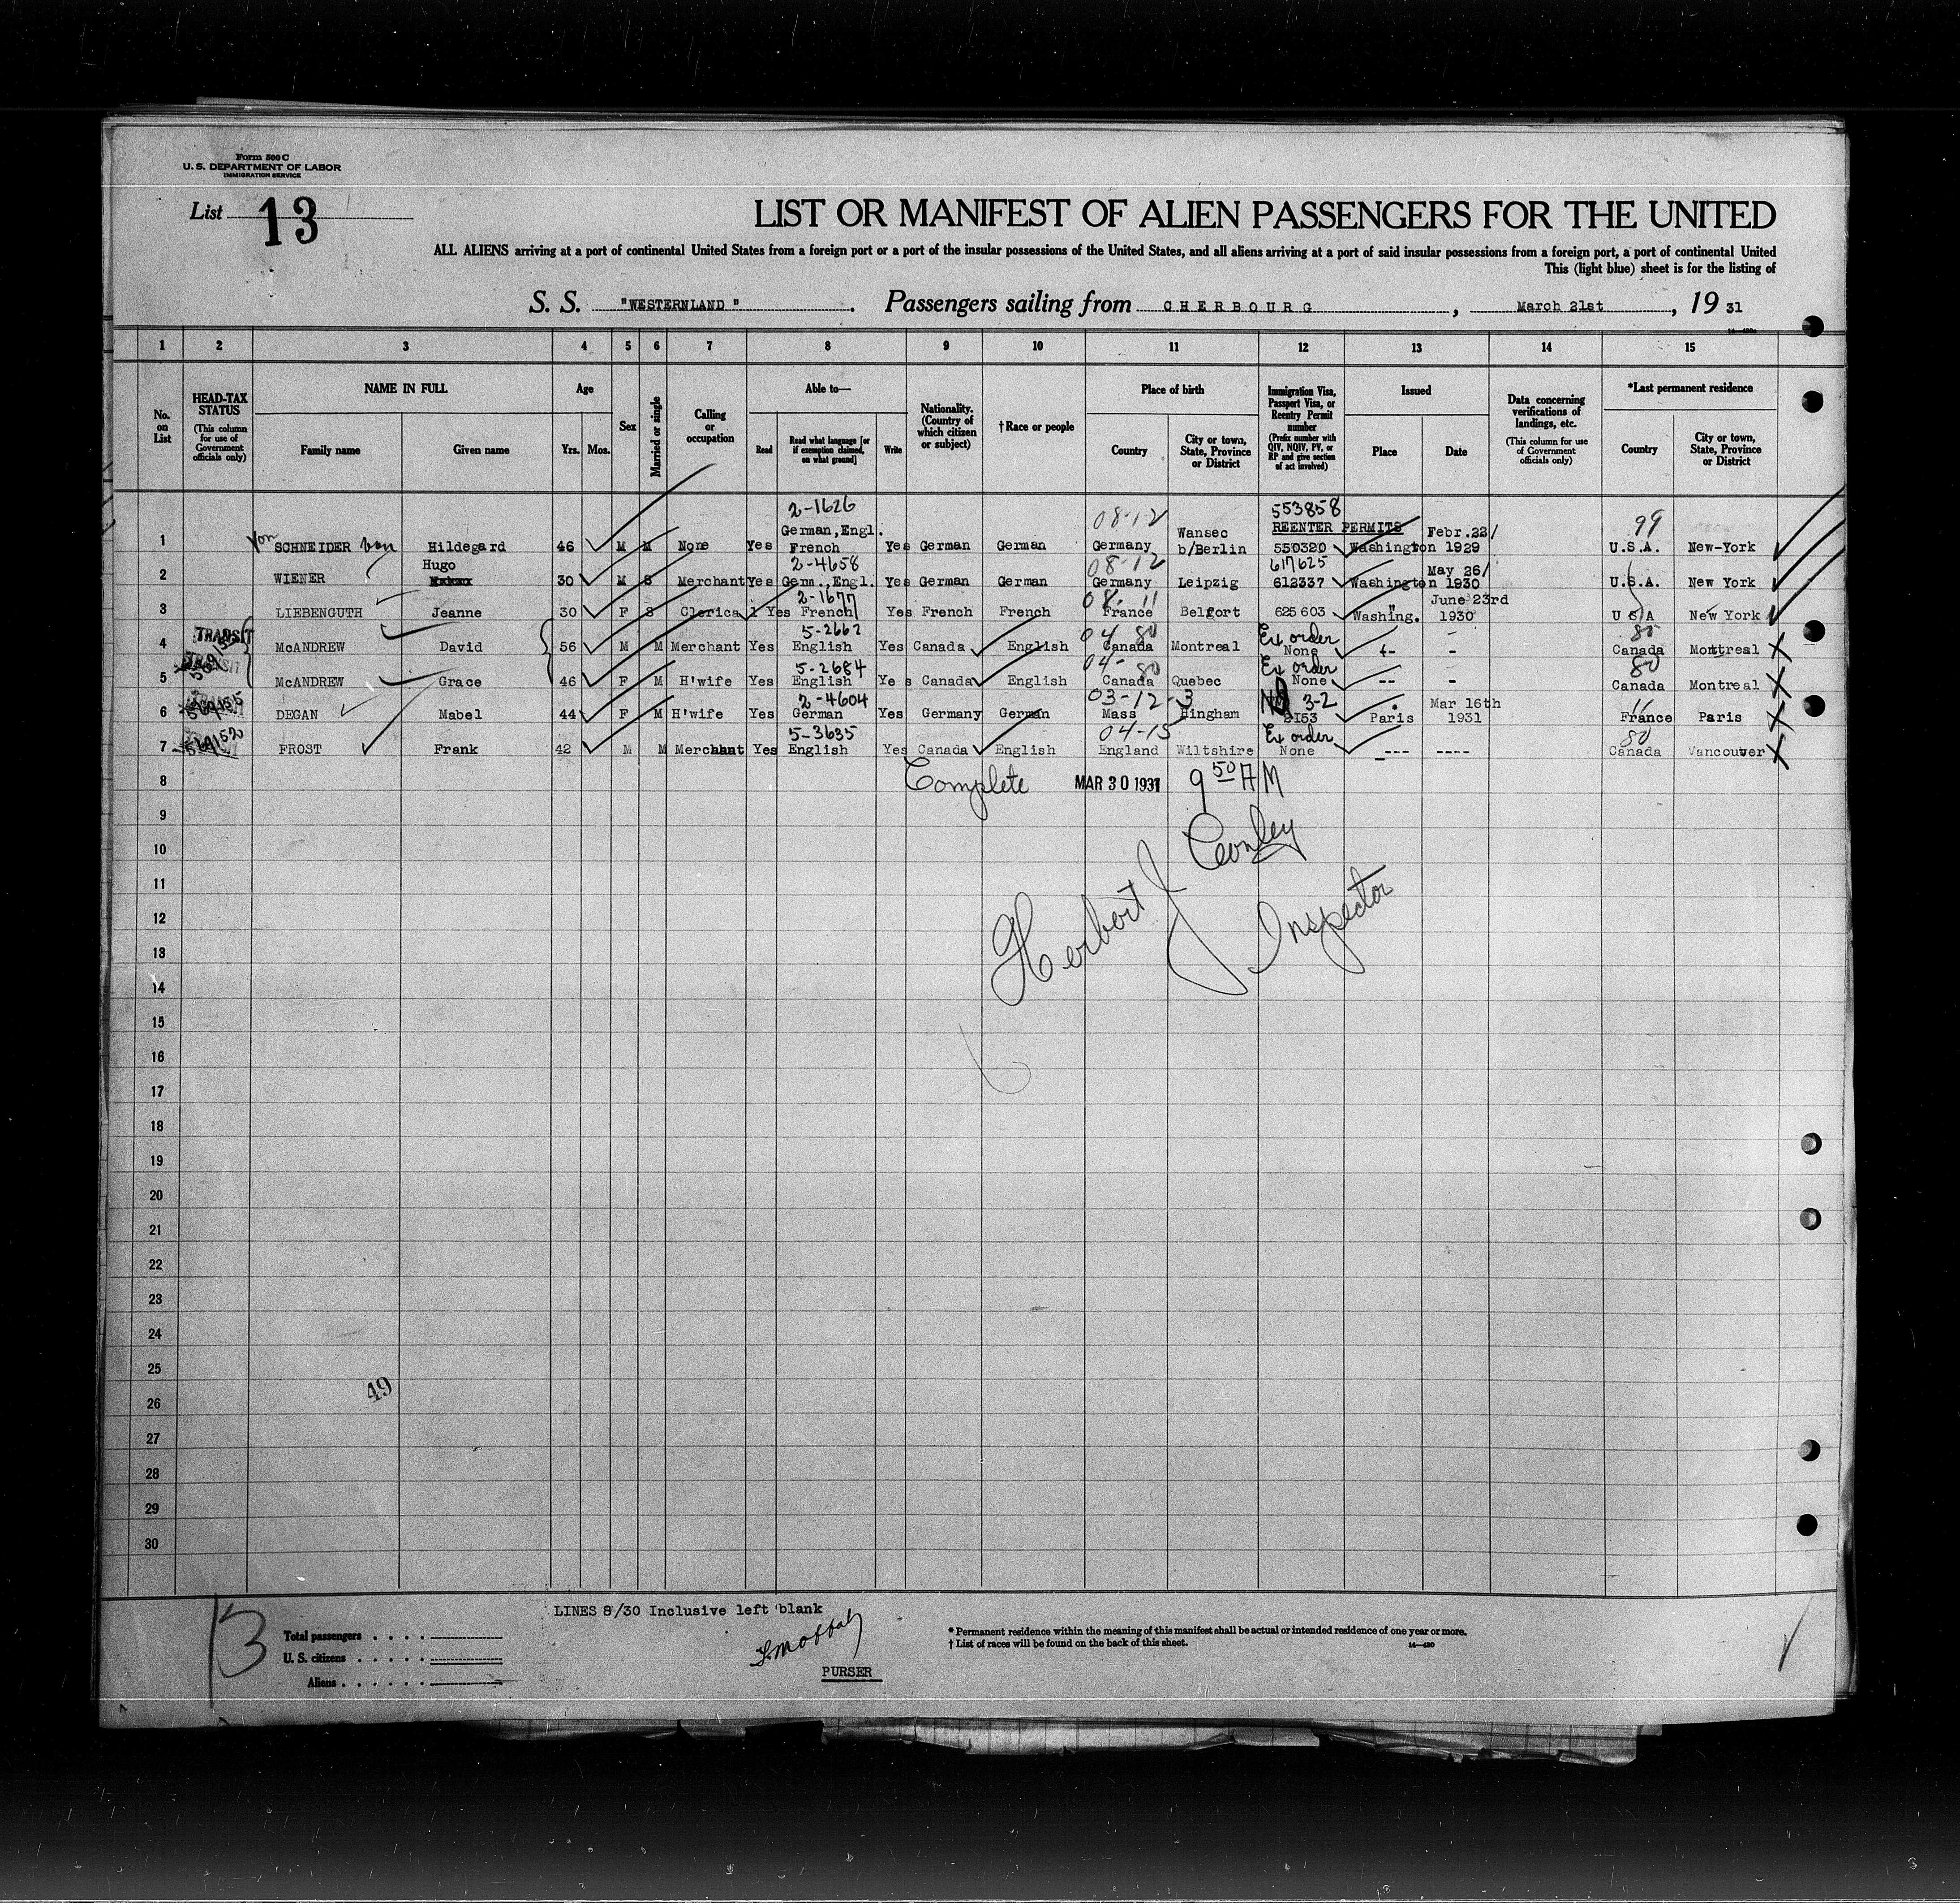 Form 500 C
U. S. DEPARTMENT OF LABOR
IMMIGRATION SERVICE
List 13
LIST OR MANIFEST OF ALIEN PASSENGERS FOR THE UNITED
ALL ALIENS arriving at a port of continental United States from a foreign port or a port of the insular possessions of the United States, and all aliens arriving at a port of said insular possessions from a foreign port, a port of continental United
This (light blue) sheet is for the listing of
S. S. "WESTERNLAND". Passengers sailing from CHERBOURG, March 21st, 19 31
1 2 3 4 5 6 7 8 9 10 11 12 13 14 15
No. on List
HEAD-TAX STATUS (This column for use of Government officials only)
NAME IN FULL Family name Given name
Age Yrs. Mos.
Sex
Married or single
Calling or occupation
Able to— Read Read what language [or if exemption claimed, on what ground] Write
Nationality. (Country of which citizen or subject)
†Race or people
Place of birth Country City or town, State, Province or District
Immigration Visa, Passport Visa, or Reentry Permit number (Prefix number with QIV, NQIV, PV, or RP and give section of act involved)
Issued Place Date
Data concerning verifications of landings, etc. (This column for use of Government officials only)
*Last permanent residence Country City or town, State, Province or District
2-1626 08-12 553858 99
German, Engl. Wansec REENTER PERMITS Febr.22/
1 von SCHNEIDER von Hildegard 46 M M None Yes French Yes German German Germany b/Berlin 550320 Washington 1929 U.S.A. New-York
Hugo 2-4658 08-12 617625 May 26/
2 WIENER 30 M S Merchant Yes Germ.,Engl. Yes German German Germany Leipzig 612337 Washington 1930 U.S.A. New York
2-1677 08-11 " June 23rd
3 LIEBENGUTH Jeanne 30 F S Clerical Yes French Yes French French France Belfort 625603 Washing. 1930 U S A New York
TRANSIT 5-2662 04 80 Ex order 80
4 McANDREW David 56 M M Merchant Yes English Yes Canada English Canada Montreal None - - Canada Montreal
5-2684 04- 80 Ex order 80
5 McANDREW Grace 46 F M H'wife Yes English Yes Canada English Canada Quebec None -- - Canada Montreal
2-4604 03-12-3 3-2 Mar 16th 11
6 DEGAN Mabel 44 F M H'wife Yes German Yes Germany German Mass Hingham 2153 Paris 1931 France Paris
5-3635 04-15 Ex order 80
7 FROST Frank 42 M M Merchant Yes English Yes Canada English England Wiltshire None --- ---- Canada Vancouver
8 Complete MAR 30 1931 9 50 AM
9
10 Herbert J Conley
11
12 Inspector
13
14
15
16
17
18
19
20
21
22
23
24
25
49
26
27
28
29
30
LINES 8/30 Inclusive left blank
13
Total passengers
U. S. citizens
Aliens
PURSER
* Permanent residence within the meaning of this manifest shall be actual or intended residence of one year or more.
† List of races will be found on the back of this sheet.
14—430